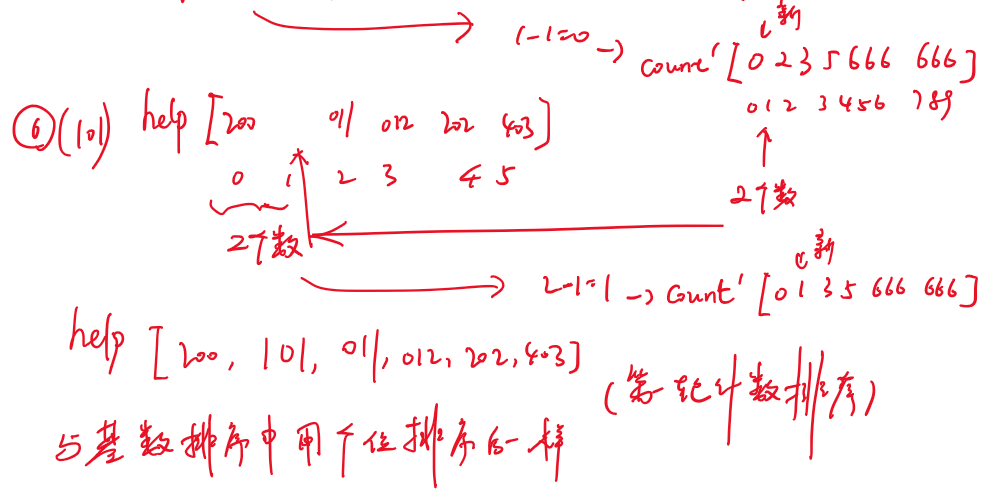 ↓新
1-1=0 → count' [0 2 3 5 6 6 6 6 6 6]
0 1 2 3 4 5 6 7 8 9
⑥(101) help [200 011 012 202 403]
0 1 2 3 4 5
2个数
2个数
↓新
2-1=1 → count' [0 1 3 5 6 6 6 6 6 6]
help [200, 101, 011, 012, 202, 403]
(第一轮计数排序)
与基数排序中用个位排序后一样